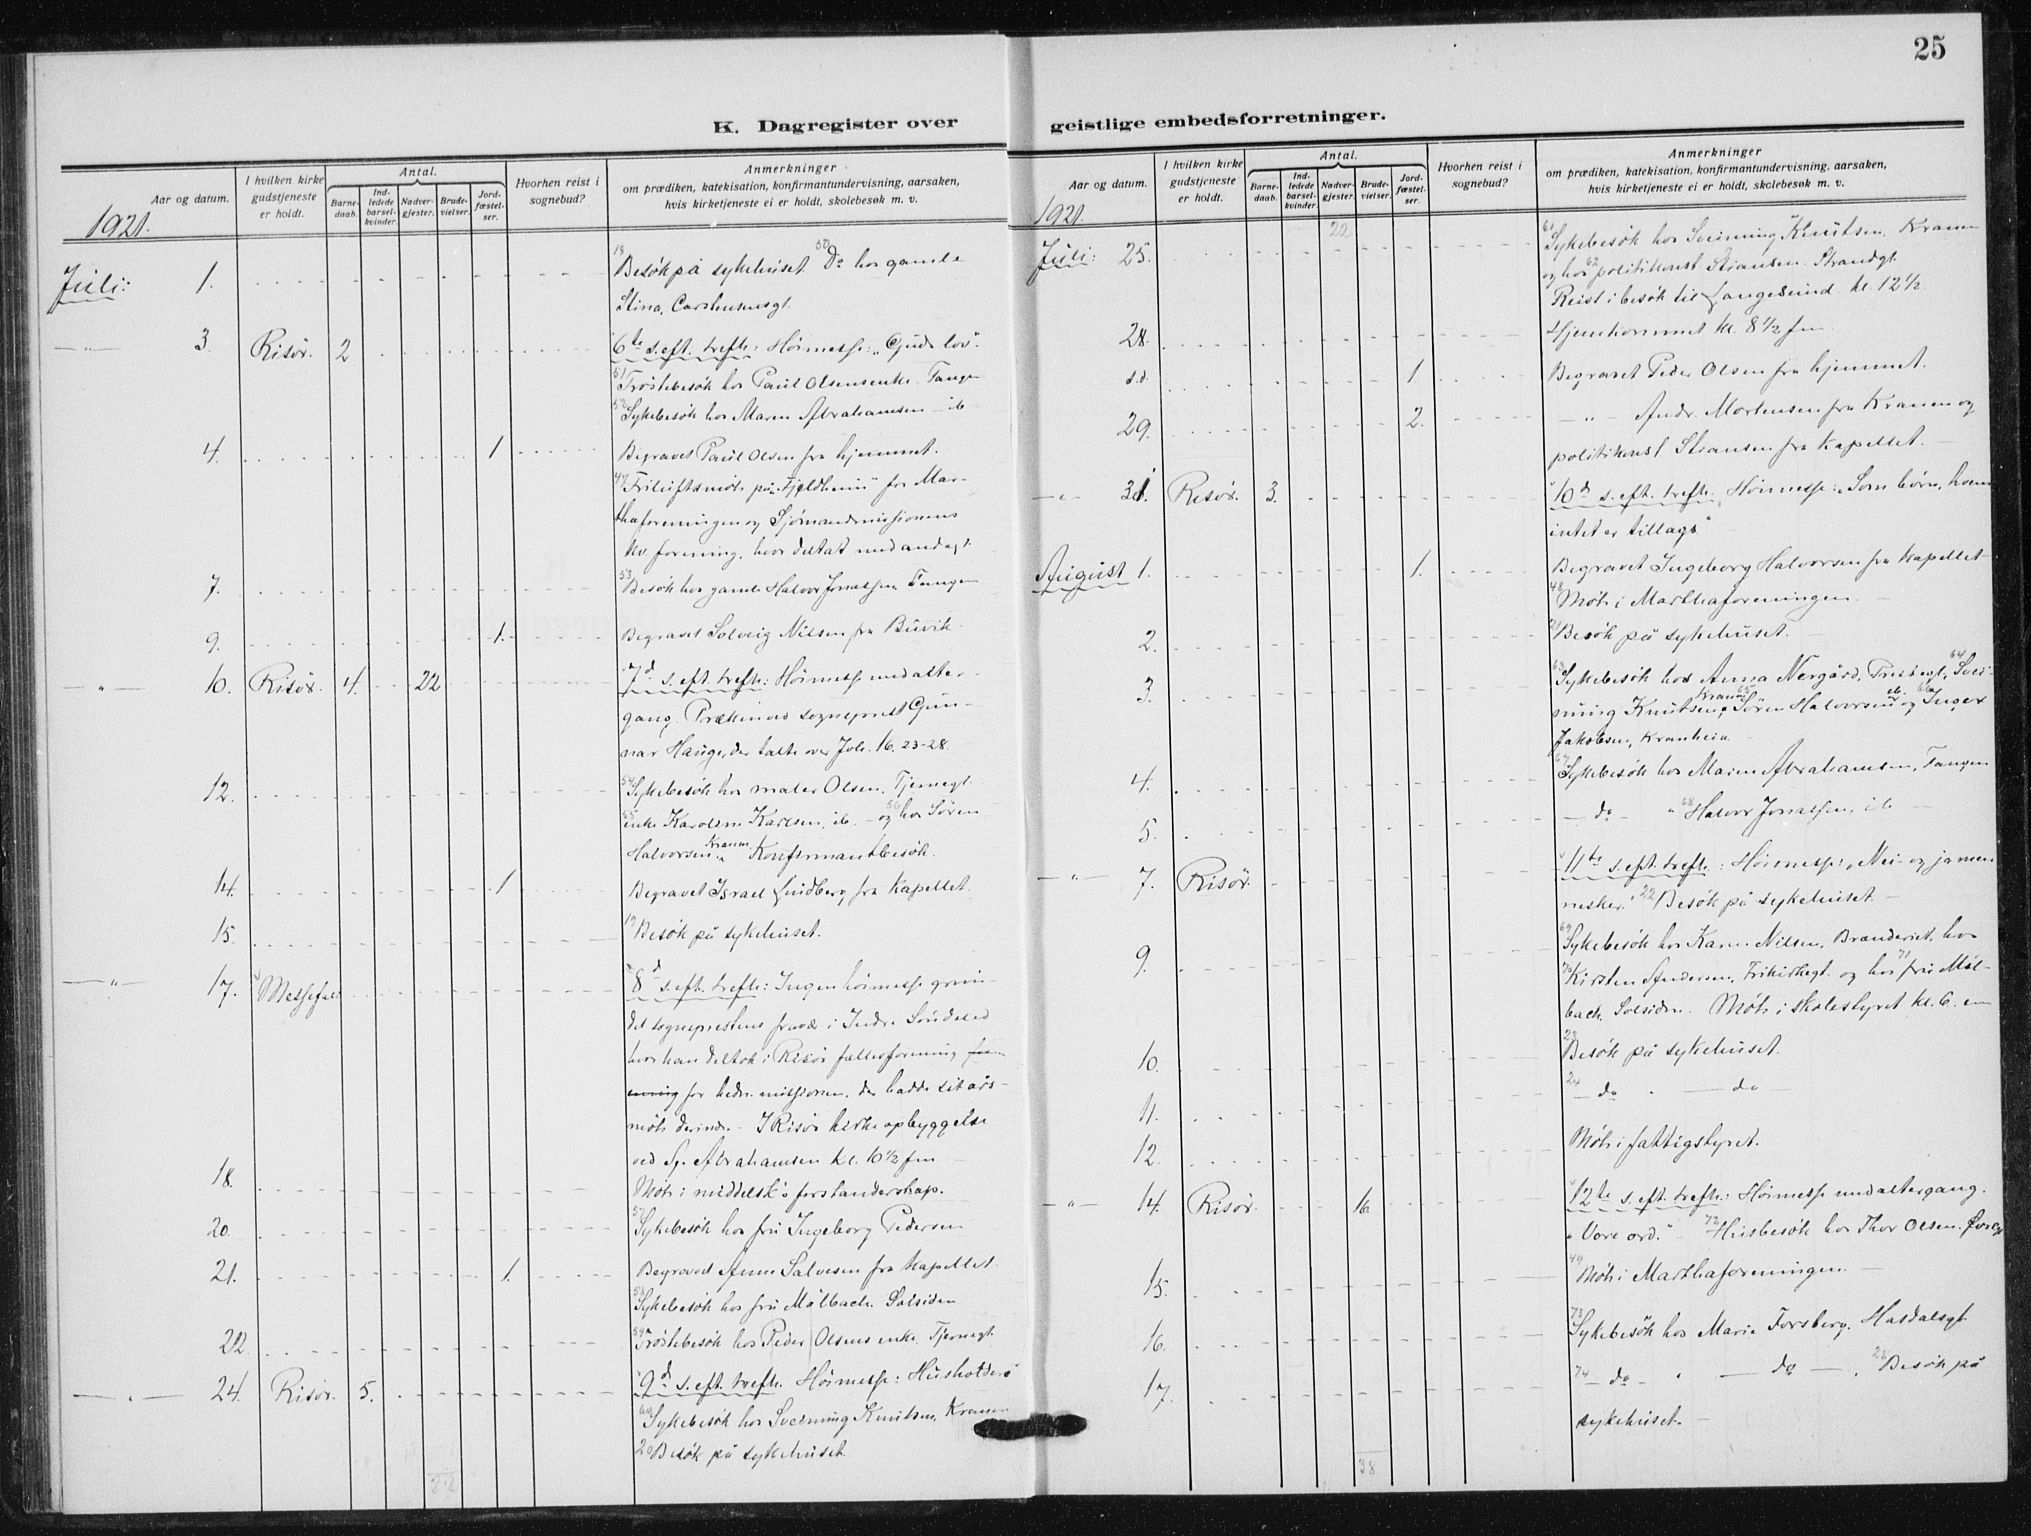 25
K. Dagregister over
geistlige embedsforretninger.
Aar og datum.
I hvilken kirke gudstjeneste er holdt.
Antal.
Barnedaab.
Indledede barselkvinder.
Nadvergjester.
Brudevielser.
Jordfæstelser.
Hvorhen reist i sognebud?
Anmerkninger
om prædiken, katekisation, konfirmantundervisning, aarsaken,
hvis kirketjeneste ei er holdt, skolebesøk m. v.
1921.
Juli: 1. 18 Besøk på sykehuset 50 Do hos gamle
Stina, Carstensensgt.
— " — 3. Risør. 2 6te s. eft. trefh: Høimesse: „Guds lov".
51 Trøstebesøk hos Paul Olsens enke. Tangen
52 Sykebesøk hos Maren Abrahamsen – ib
4. 1 Begravet Paul Olsen fra hjemmet.
47 Friluftsmøte på „Fjeldheim" for Mar-
thaforeningen og Sjømandsmissionens
kv forening, hvor deltat med andagt.
7. 53 Besøk hos gamle Halvor Jonassen Tangen
9. 1. Begravet Solveig Nilsen fra Buvik.
— " — 10. Risør. 4. 22 7d s. eft. trefh: Høimesse med alter-
gang. Prækén ved sogneprest Gun-
nar Hauge, der talte over Joh. 16. 23-28.
12. 54 Sykebesøk hos maler Olsen, Tjernegt.
55 enke Karoline Karlsen, ib. – og 56 hos Søren
Halvorsen, Kranen Konfirmantbesøk.
14. 1 Begravet Israel Lindberg fra Kapellet.
15. 19 Besøk på sykehuset.
— " — 17. Messefald 8d s. eft. trefh: Ingen høimesse grun-
det sogneprestens fravær i Indre Søndeled
hvor han deltok i Risør fællesforening for-
ening for hedn. missionen, der hadde sit års-
møte derinde – I Risør kirke opbyggelse
ved Sp. Abrahamsen kl. 10 ½ fm
18. Møte i middelsk's forstanderskap.
20. 57 Sykebesøk hos fru Ingeborg Pedersen
21. 1. Begravet Anne Salvesen fra Kapellet.
58 Sykebesøk hos fru Målbach. Solsiden
22. 59 Trøstebesøk hos Peder Olsens enke. Tjernegt.
— " — 24. Risør. 5. 9d s. eft. trefh. Høimesse: Husholdere
60 Sykebesøk hos Sveinung Knutsen, Kranen
20 Besøk på sykehuset.
22
Aar og datum.
I hvilken kirke gudstjeneste er holdt.
Antal.
Barnedaab.
Indledede barselkvinder.
Nadvergjester.
Brudevielser.
Jordfæstelser.
Hvorhen reist i sognebud?
Anmerkninger
om prædiken, katekisation, konfirmantundervisning, aarsaken,
hvis kirketjeneste ei er holdt, skolebesøk m. v.
1921.
22
Juli: 25. 61 Sykebesøk hos Sveinung Knutsen. Kranen
og hos 62 politikonst. Stiansen. Strandgt.
Reist i besøk til Langesund. kl. 12 ½
28. Hjemkommet kl. 8 ½ fm.
s.d. 1. Begravet Peder Olsen fra hjemmet.
29. 2. — " — Andr. Mortensen fra Kranen og
politikonst. Stiansen fra Kapellet. —
— " — 31. Risør. 3. 10d s. eft. trefh. Høimesse: „Som børn, hvem
intet er tillagt"
August 1. 1. Begravet Ingeborg Halvorsen fra Kapellet
48 Møte i Marthaforeningen. —
2. 21 Besøk på sykehuset. —
3. 63 Sykebesøk hos Anna Nergård, Prestegt, 64 Svei-
nung Knutsen, Kranen 65 Søren Halvorsen ib. og 66 Inger
Jakobsen, Kranheia —
4. 67 Sykebesøk hos Maren Abrahamsen, Tangen
5. — do — " 68 Halvor Jonassen, ib —
— " — 7. Risør. 11te s. eft. trefh. : Høimesse: „Nei- og jamen
nesker." 22 Besøk på sykehuset. —
9. 69 Sykebesøk hos Karen Nilsen, Branderiet, hos
70 Kirsten Andersen, Frikirkegt. og hos 71 fru Mål-
bach. Solsiden. Møte i skolestyret kl. 6. em
10. 23 Besøk på sykehuset.
11. 24 — do " — do —
12. Møte i fattigstyret.
— " — 14. Risør. 16. 12te s. eft. trefh.: Høimesse med altergang.
„Vore ord." – 72 Husbesøk hos Thor Olsen.
15. 49 Møte i Marthaforeningen. —
16. 73 Sykebesøk hos Marie Forsberg, Hasdalsgt.
17. 74 — do — " — do —, 25 Besøk på
sykehuset. —
38